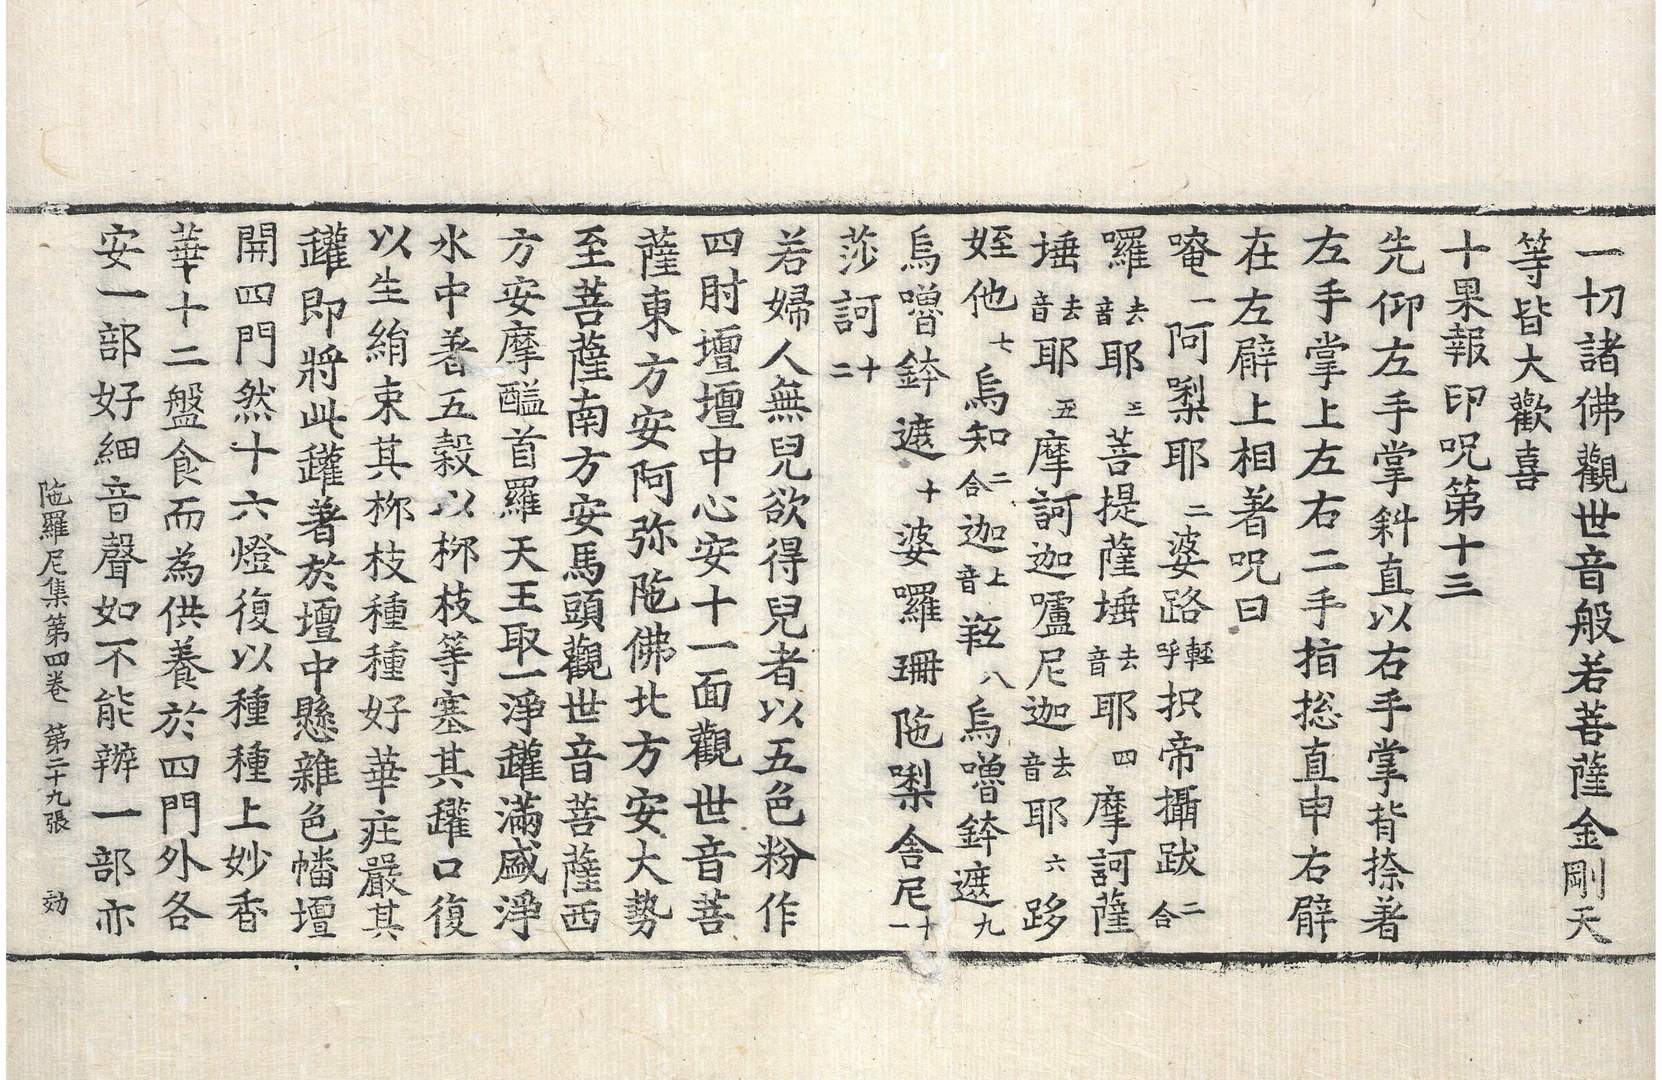 一切諸佛觀世音般若菩薩金剛天
等皆大歡喜
十果報印呪第十三
先仰左手掌斜直以右手掌背捺著
左手掌上左右二手指捴直申右臂
在左臂上相著呪曰
唵一阿㗚耶二婆路輕呼抧帝攝跋二合
囉去音耶三菩提薩埵去音耶四摩訶薩
埵去音耶五摩訶迦嚧尼迦去音耶六跢
姪他七烏知二合迦上音𦍕八烏嚕鉢遮九
烏嚕鉢遮十婆囉珊陁㗚舍尼十一
莎訶十二
若婦人無兒欲得兒者以五色粉作
四肘壇壇中心安十一面觀世音菩
薩東方安阿弥陁佛北方安大勢
至菩薩南方安馬頭觀世音菩薩西
方安摩醯首羅天王取一淨鑵滿盛淨
水中著五穀以栁枝等塞其鑵口復
以生絹束其栁枝種種好華莊嚴其
鑵即將此鑵著於壇中懸雜色幡壇
開四門然十六燈復以種種上妙香
華十二盤食而為供養於四門外各
安一部好細音聲如不能辦一部亦
陁羅尼集第四卷　第二十九張　効